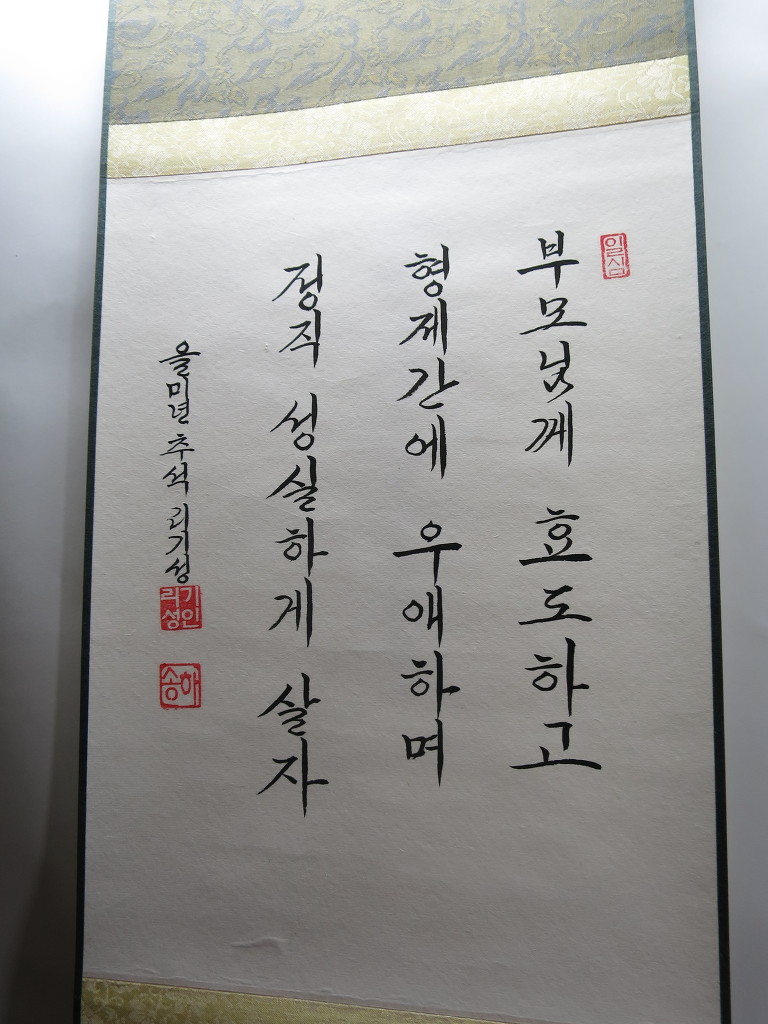 일심
부모님께 효도하고
형제간에 우애하며
정직 성실하게 살자
을미년 추석 리기성
기인
리성
하
송